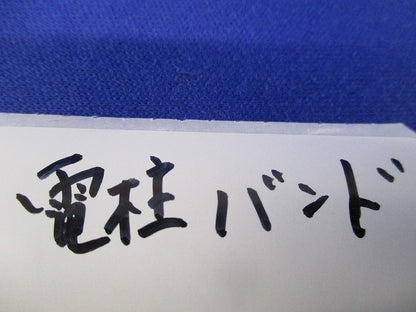 電柱バンド